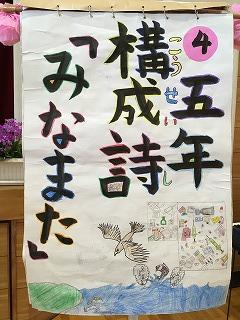 ④五年
構成詩
こうせいし
「みなまた」